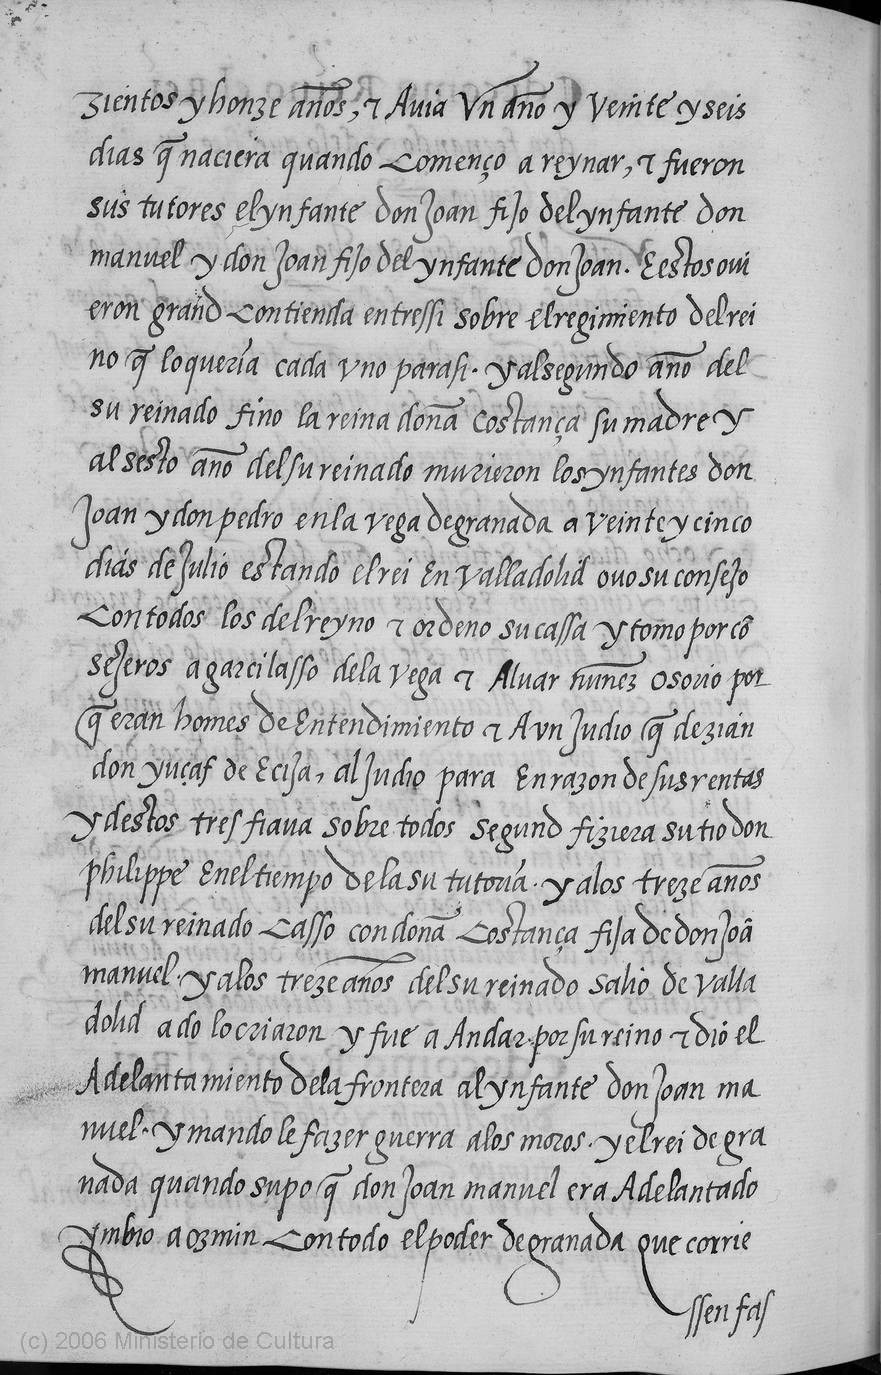 zientos y honze años, & Avia Vn año y Veinte y seis
dias q̃ naciera quando Començo a reynar, & fueron
sus tutores el ynfante don Joan fijo del ynfante don
manuel y don Joan fijo del ynfante don Joan. E estos ovi
eron grand Contienda entressi sobre el regimiento del rei
no q̃ lo quería cada vno parasi. y al segundo año del
su reinado fino la reina doña Costança su madre y
al sesto año del su reinado murieron los ynfantes don
Joan y don pedro en la vega de granada a Veinte y cinco
dias de Julio estando el rei En Valladolid ovo su consejo
Con todos los del reyno & ordeno su cassa y tomo por cõ
sejeros a garcilasso de la Vega & Alvar nuñez osorio por
q̃ eran homes de Entendimiento & A vn Judio q̃ dezian
don yuçaf de Ecija, al Judio para En razon de sus rentas
y destos tres fiaua sobre todos segund fiziera su tio don
philippe En el tiempo de la su tutoria. y a los treze años
del su reinado Casso con doña Costança fija de don Joã
manuel. y a los treze años del su reinado salio de Valla
dolid a do lo criaron y fue a Andar por su reino & dio el
Adelantamiento de la frontera al ynfante don Joan ma
nuel. y mando le fazer guerra a los moros. y el rei de gra
nada quando supo q̃ don Joan manuel era Adelantado
ymbio a ozmin Con todo el poder de granada que corrie
ssen fas
(c) 2006 Ministerio de Cultura